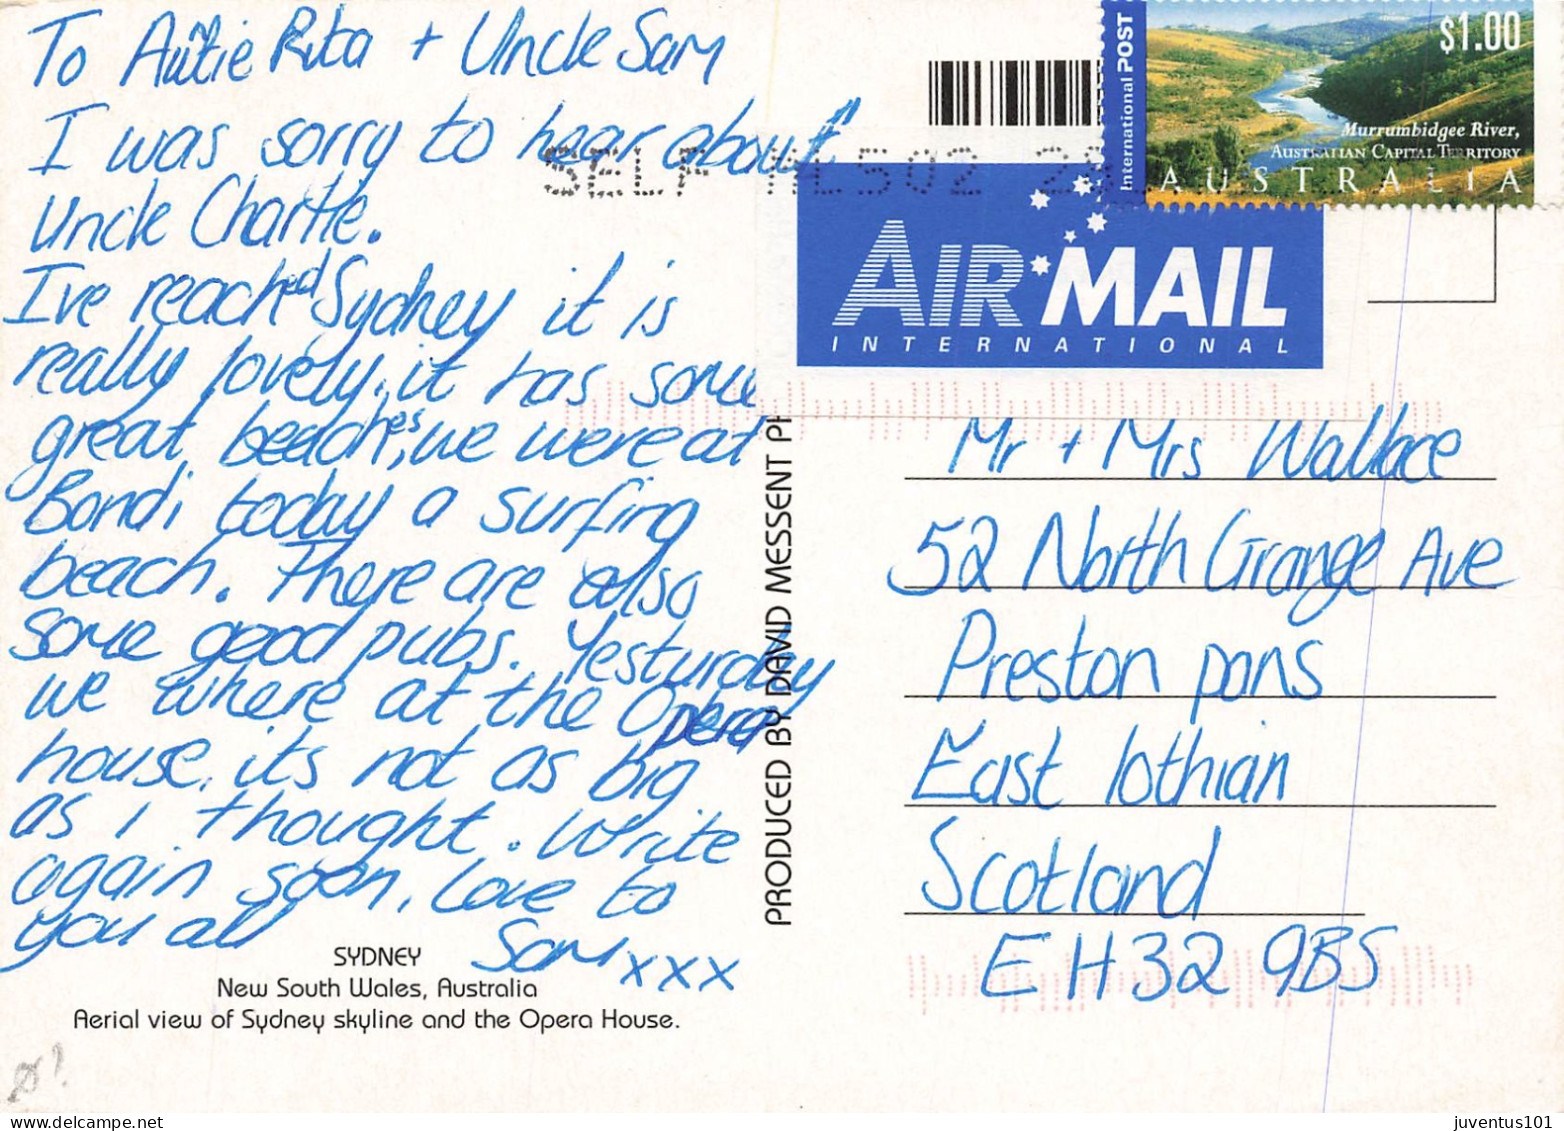 To Auntie Rita + Uncle Sam
I was sorry to hear about
Uncle Charlie.
I've reached Sydney it is
really lovely, it has some
great beaches, we were at
Bondi today a surfing
beach. There are also
some good pubs. Yesturday
we where at the Opera
house, its not as big
as I thought. Write
again soon, Love to
you all
Sam xxx
SYDNEY
New South Wales, Australia
Aerial view of Sydney skyline and the Opera House.
PRODUCED BY DAVID MESSENT PH
SELF ML502 28
International POST
$1.00
Murrumbidgee River,
AUSTRALIAN CAPITAL TERRITORY
AUSTRALIA
AIR MAIL
INTERNATIONAL
Mr + Mrs Wallace
52 North Grange Ave
Preston pans
East lothian
Scotland
EH32 9BS
juventus101